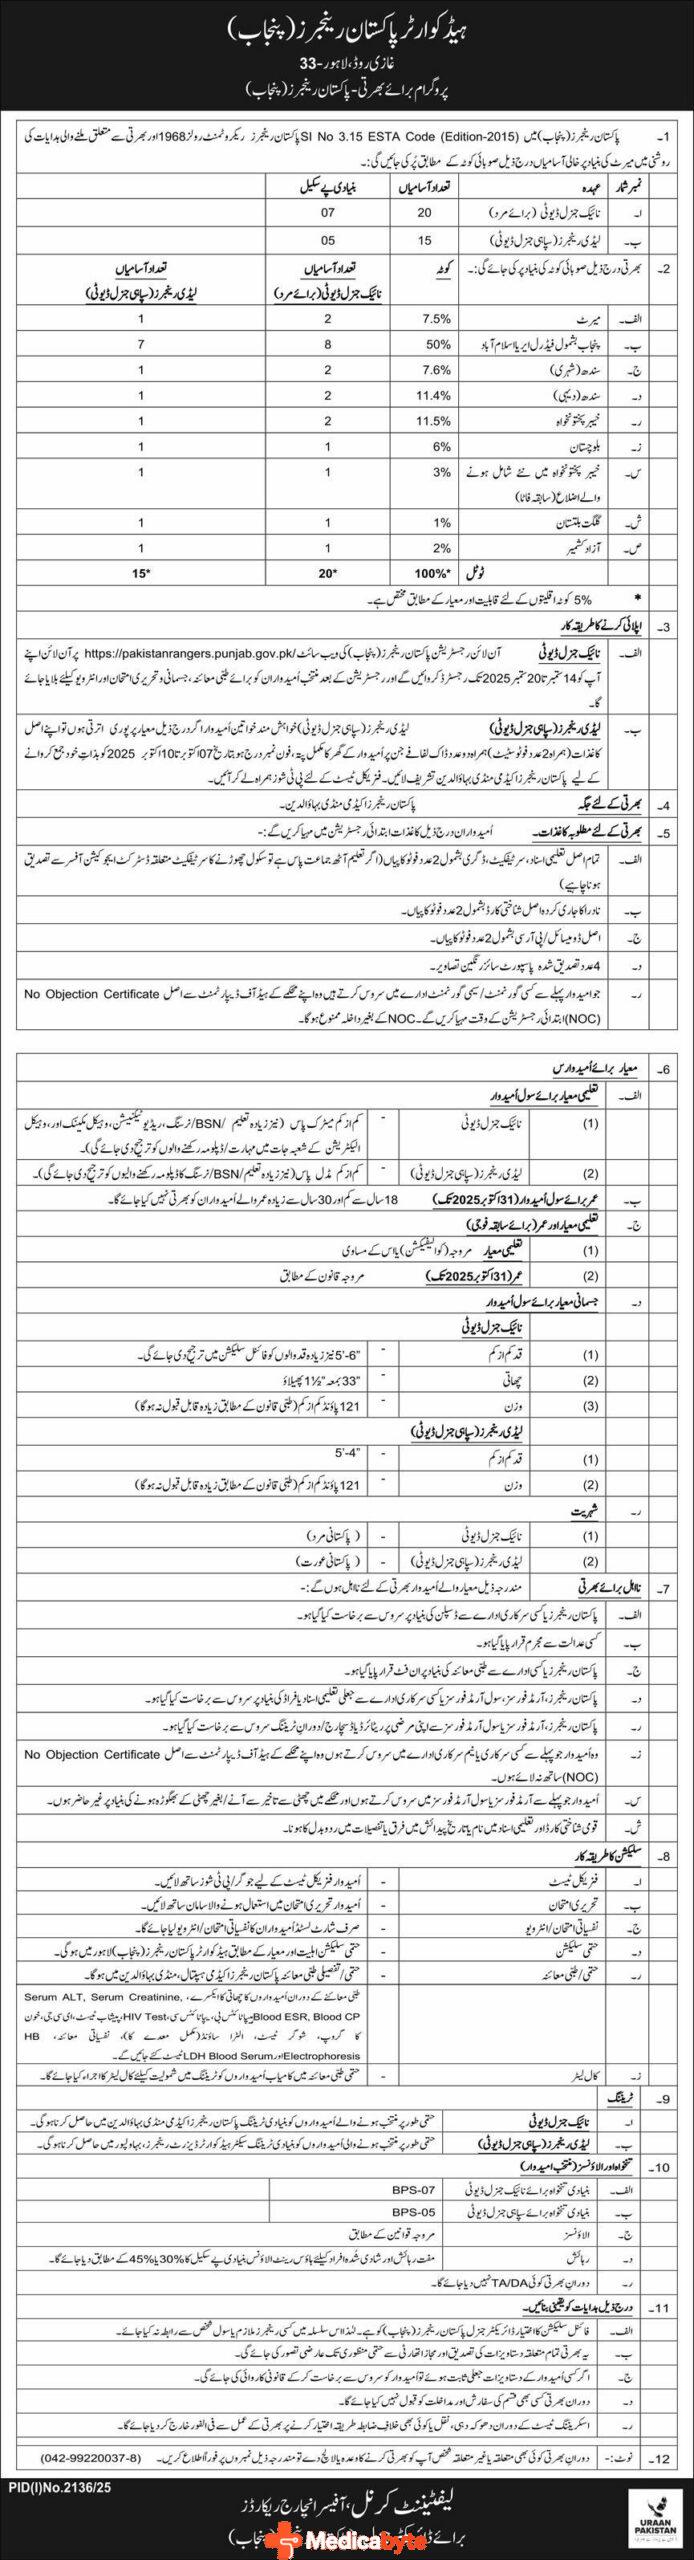 ہیڈ کوارٹر پاکستان رینجرز (پنجاب)
غازی روڈ، لاہور-33
پروگرام برائے بھرتی - پاکستان رینجرز (پنجاب)
1- پاکستان رینجرز (پنجاب) میں SI No 3.15 ESTA Code (Edition-2015) پاکستان رینجرز ریکروٹمنٹ رولز 1968 اور بھرتی سے متعلق ملنے والی ہدایات کی
روشنی میں میرٹ کی بنیاد پر خالی آسامیاں درج ذیل صوبائی کوٹہ کے مطابق پُر کی جائیں گی:۔
نمبر شمار عہدہ تعداد آسامیاں بنیادی پے سکیل
ا۔ نائیک جنرل ڈیوٹی (برائے مرد) 20 07
ب۔ لیڈی رینجرز (سپاہی جنرل ڈیوٹی) 15 05
2- بھرتی درج ذیل صوبائی کوٹہ کی بنیاد پر کی جائے گی:۔ کوٹہ تعداد آسامیاں نائیک جنرل ڈیوٹی (برائے مرد) تعداد آسامیاں لیڈی رینجرز (سپاہی جنرل ڈیوٹی)
الف۔ میرٹ 7.5% 2 1
ب۔ پنجاب بشمول فیڈرل ایریا اسلام آباد 50% 8 7
ج۔ سندھ (شہری) 7.6% 2 1
د۔ سندھ (دیہی) 11.4% 2 1
ر۔ خیبر پختونخواہ 11.5% 2 1
ز۔ بلوچستان 6% 1 1
س۔ خیبر پختونخواہ میں نئے شامل ہونے 3% 1 1
والے اضلاع (سابقہ فاٹا)
ش۔ گلگت بلتستان 1% 1 1
ص۔ آزاد کشمیر 2% 1 1
ٹوٹل 100%* 20* 15*
* 5% کوٹہ اقلیتوں کے لئے قابلیت اور معیار کے مطابق مختص ہے۔
3- اپلائی کرنے کا طریقہ کار
الف۔ نائیک جنرل ڈیوٹی آن لائن رجسٹریشن پاکستان رینجرز (پنجاب) کی ویب سائٹ https://pakistanrangers.punjab.gov.pk/ پر آن لائن اپنے
آپ کو 14 ستمبر تا 20 ستمبر 2025 تک رجسٹرڈ کروائیں گے اور رجسٹریشن کے بعد منتخب اُمیدواران کو برائے طبی معائنہ، جسمانی و تحریری امتحان اور انٹرویو کیلئے بلایا جائے
گا۔
ب۔ لیڈی رینجرز (سپاہی جنرل ڈیوٹی) لیڈی رینجرز (سپاہی جنرل ڈیوٹی) خواہش مند خواتین اُمیدوار اگر درج ذیل معیار پر پوری اُترتی ہوں تو اپنے اصل
کاغذات (ہمراہ 2 عدد فوٹو سٹیٹ) ہمراہ دو عدد ڈاک لفافے جن پر اُمیدوار کے گھر کا مکمل پتہ، فون نمبر درج ہو بتاریخ 07 اکتوبر تا 10 اکتوبر 2025 کو بذاتِ خود جمع کروانے
کے لیے پاکستان رینجرز اکیڈمی منڈی بہاؤالدین تشریف لائیں۔ فزیکل ٹیسٹ کے لئے پی ٹی شوز ہمراہ لے کر آئیں۔
4- بھرتی کے لئے جگہ پاکستان رینجرز اکیڈمی منڈی بہاؤالدین۔
5- بھرتی کے لئے مطلوبہ کاغذات۔ اُمیدواران درج ذیل کاغذات ابتدائی رجسٹریشن میں مہیا کریں گے:۔
الف۔ تمام اصل تعلیمی اسناد، سرٹیفکیٹ، ڈگری بشمول 2 عدد فوٹو کاپیاں (اگر تعلیم آٹھ جماعت پاس ہے تو سکول چھوڑنے کا سرٹیفکیٹ متعلقہ ڈسٹرکٹ ایجوکیشن آفیسر سے تصدیق
ہونا چاہیے)
ب۔ نادرا کا جاری کردہ اصل شناختی کارڈ بشمول 2 عدد فوٹو کاپیاں۔
ج۔ اصل ڈومیسائل / پی آر سی بشمول 2 عدد فوٹو کاپیاں۔
د۔ 4 عدد تصدیق شدہ پاسپورٹ سائز رنگین تصاویر۔
ر۔ جو امیدوار پہلے سے کسی گورنمنٹ / سیمی گورنمنٹ ادارے میں سروس کرتے ہیں وہ اپنے محکمے کے ہیڈ آف ڈیپارٹمنٹ سے اصل No Objection Certificate
(NOC) ابتدائی رجسٹریشن کے وقت مہیا کریں گے۔ NOC کے بغیر داخلہ ممنوع ہو گا۔
6- معیار برائے اُمیدوارس
الف۔ تعلیمی معیار برائے سول اُمیدوار
(1) نائیک جنرل ڈیوٹی - کم از کم میٹرک پاس (نیز زیادہ تعلیم /BSN/ نرسنگ، ریڈیو ٹیکنیشن، وہیکل مکینک اور وہیکل
الیکٹریشن کے شعبہ جات میں مہارت / ڈپلومہ رکھنے والوں کو ترجیح دی جائے گی)۔
(2) لیڈی رینجرز (سپاہی جنرل ڈیوٹی) - کم از کم مڈل پاس (نیز زیادہ تعلیم /BSN/ نرسنگ کا ڈپلومہ رکھنے والیوں کو ترجیح دی جائے گی)۔
ب۔ عمر برائے سول اُمیدوار (31 اکتوبر 2025 تک) 18 سال سے کم اور 30 سال سے زیادہ عمر والے اُمیدواران کو بھرتی نہیں کیا جائے گا۔
ج۔ تعلیمی معیار اور عمر (برائے سابقہ فوجی)
(1) تعلیمی معیار مروجہ (کوالیفکیشن) یا اس کے مساوی
(2) عمر (31 اکتوبر 2025 تک) مروجہ قانون کے مطابق
د۔ جسمانی معیار برائے سول اُمیدوار
نائیک جنرل ڈیوٹی
(1) قد کم از کم - 5'-6" نیز زیادہ قد والوں کو فائنل سلیکشن میں ترجیح دی جائے گی۔
(2) چھاتی - 33" بمعہ 1½" پھیلاؤ
(3) وزن - 121 پاؤنڈ کم از کم (طبی قانون کے مطابق زیادہ قابل قبول نہ ہو گا)
لیڈی رینجرز (سپاہی جنرل ڈیوٹی)
(1) قد کم از کم - 5'-4"
(2) وزن - 121 پاؤنڈ کم از کم (طبی قانون کے مطابق زیادہ قابل قبول نہ ہو گا)
ر۔ شہریت
(1) نائیک جنرل ڈیوٹی - (پاکستانی مرد)
(2) لیڈی رینجرز (سپاہی جنرل ڈیوٹی) - (پاکستانی عورت)
7- نااہل برائے بھرتی مندرجہ ذیل معیار والے اُمیدوار بھرتی کے لئے نااہل ہوں گے:-
الف۔ پاکستان رینجرز یا کسی سرکاری ادارے سے ڈسپلن کی بنیاد پر سروس سے برخاست کیا گیا ہو۔
ب۔ کسی عدالت سے مجرم قرار پایا گیا ہو۔
ج۔ پاکستان رینجرز یا کسی ادارے سے طبی معائنہ کی بنیاد پر ان فٹ قرار پایا گیا ہو۔
د۔ پاکستان رینجرز، آرمڈ فورسز، سول آرمڈ فورسز یا کسی سرکاری ادارے سے جعلی تعلیمی اسناد یا فراڈ کی بنیاد پر سروس سے برخاست کیا گیا ہو۔
ر۔ پاکستان رینجرز، آرمڈ فورسز یا سول آرمڈ فورسز سے اپنی مرضی پر ریٹائرڈ یا ڈسچارج / دورانِ ٹریننگ سروس سے برخاست کیا گیا ہو۔
ز۔ وہ اُمیدوار جو پہلے سے کسی سرکاری یا نیم سرکاری ادارے میں سروس کرتے ہوں وہ اپنے محکمے کے ہیڈ آف ڈیپارٹمنٹ سے اصل No Objection Certificate
(NOC) ساتھ نہ لائے ہوں۔
س۔ اُمیدوار جو پہلے سے آرمڈ فورسز یا سول آرمڈ فورسز میں سروس کرتے ہوں اور محکمے میں چھٹی سے تاخیر سے آنے / بغیر چھٹی کے بھگوڑہ ہونے کی بنیاد پر غیر حاضر ہوں۔
ش۔ قومی شناختی کارڈ اور تعلیمی اسناد میں نام یا تاریخ پیدائش میں فرق یا تفصیلات میں ردو بدل کا ہونا۔
8- سلیکشن کا طریقہ کار
ا۔ فزیکل ٹیسٹ - اُمیدوار فزیکل ٹیسٹ کے لیے جوگر / پی ٹی شوز ساتھ لائیں۔
ب۔ تحریری امتحان - اُمیدوار تحریری امتحان میں استعمال ہونے والا سامان ساتھ لائیں۔
ج۔ نفسیاتی امتحان / انٹرویو - صرف شارٹ لسٹڈ اُمیدواران کا نفسیاتی امتحان / انٹرویو لیا جائے گا۔
د۔ حتمی سلیکشن - حتمی سلیکشن اہلیت اور معیار کے مطابق ہیڈ کوارٹر پاکستان رینجرز (پنجاب) لاہور میں ہو گی۔
ر۔ حتمی / طبی معائنہ - حتمی / تفصیلی طبی معائنہ پاکستان رینجرز اکیڈمی ہسپتال، منڈی بہاؤالدین میں ہو گا۔
طبی معائنے کے دوران اُمیدواروں کا چھاتی کا ایکسرے، Serum ALT, Serum Creatinine,
Blood ESR, Blood CP ہیپاٹائٹس بی، ہیپاٹائٹس سی، HIV Test، پیشاب ٹیسٹ، ای سی جی، خون
کا گروپ، شوگر ٹیسٹ، الٹرا ساؤنڈ (مکمل معدے کا)، نفسیاتی معائنہ، HB
Electrophoresis اور LDH Blood Serum ٹیسٹ کئے جائیں گے۔
ز۔ کال لیٹر - حتمی طبی معائنہ میں کامیاب اُمیدواروں کو ٹریننگ میں شمولیت کیلئے کال لیٹر کا اجراء کیا جائے گا۔
9- ٹریننگ
ا۔ نائیک جنرل ڈیوٹی حتمی طور پر منتخب ہونے والے اُمیدواروں کو بنیادی ٹریننگ پاکستان رینجرز اکیڈمی منڈی بہاؤالدین میں حاصل کرنا ہو گی۔
ب۔ لیڈی رینجرز (سپاہی جنرل ڈیوٹی) حتمی طور پر منتخب ہونے والی اُمیدواروں کو بنیادی ٹریننگ سیکٹر ہیڈ کوارٹر ڈیزرٹ رینجرز، بہاولپور میں حاصل کرنا ہو گی۔
10- تنخواہ اور الاؤنسز (منتخب اُمیدوار)
الف۔ بنیادی تنخواہ برائے نائیک جنرل ڈیوٹی BPS-07
ب۔ بنیادی تنخواہ برائے سپاہی جنرل ڈیوٹی BPS-05
ج۔ الاؤنسز مروجہ قوانین کے مطابق
د۔ رہائش مفت رہائش اور شادی شدہ افراد کیلئے ہاؤس رینٹ الاؤنس بنیادی پے سکیل کا 30% یا 45% کے مطابق دیا جائے گا۔
ر۔ دورانِ بھرتی کوئی TA/DA نہیں دیا جائے گا۔
11- درج ذیل ہدایات کو یقینی بنائیں۔
الف۔ فائنل سلیکشن کا اختیار ڈائریکٹر جنرل پاکستان رینجرز (پنجاب) کو ہے۔ لہٰذا اس سلسلہ میں کسی رینجرز ملازم یا سول شخص سے رابطہ نہ کیا جائے۔
ب۔ یہ بھرتی تمام متعلقہ دستاویزات کی تصدیق اور مجاز اتھارٹی سے حتمی منظوری تک عارضی تصور کی جائے گی۔
ج۔ اگر کسی اُمیدوار کے دستاویزات جعلی ثابت ہوئے تو اُمیدوار کو سروس سے برخاست کر کے قانونی کاروائی کی جائے گی۔
د۔ دوران بھرتی کسی بھی قسم کی سفارش اور مداخلت کو قبول نہیں کیا جائے گا۔
ر۔ اسکریننگ ٹیسٹ کے دوران دھوکہ دہی، نقل یا کوئی بھی خلافِ ضابطہ طریقہ اختیار کرنے پر بھرتی کے عمل سے فی الفور خارج کر دیا جائے گا۔
12- نوٹ:- دوران بھرتی کوئی بھی متعلقہ یا غیر متعلقہ شخص آپ کو بھرتی کرنے کا وعدہ یا لالچ دے تو مندرجہ ذیل نمبروں پر فوراً اطلاع کریں۔ (042-99220037-8)
PID(I)No.2136/25
لیفٹیننٹ کرنل، آفیسر انچارج ریکارڈز
برائے ڈائریکٹر (پنجاب)
Medicabyte
URAAN
PAKISTAN